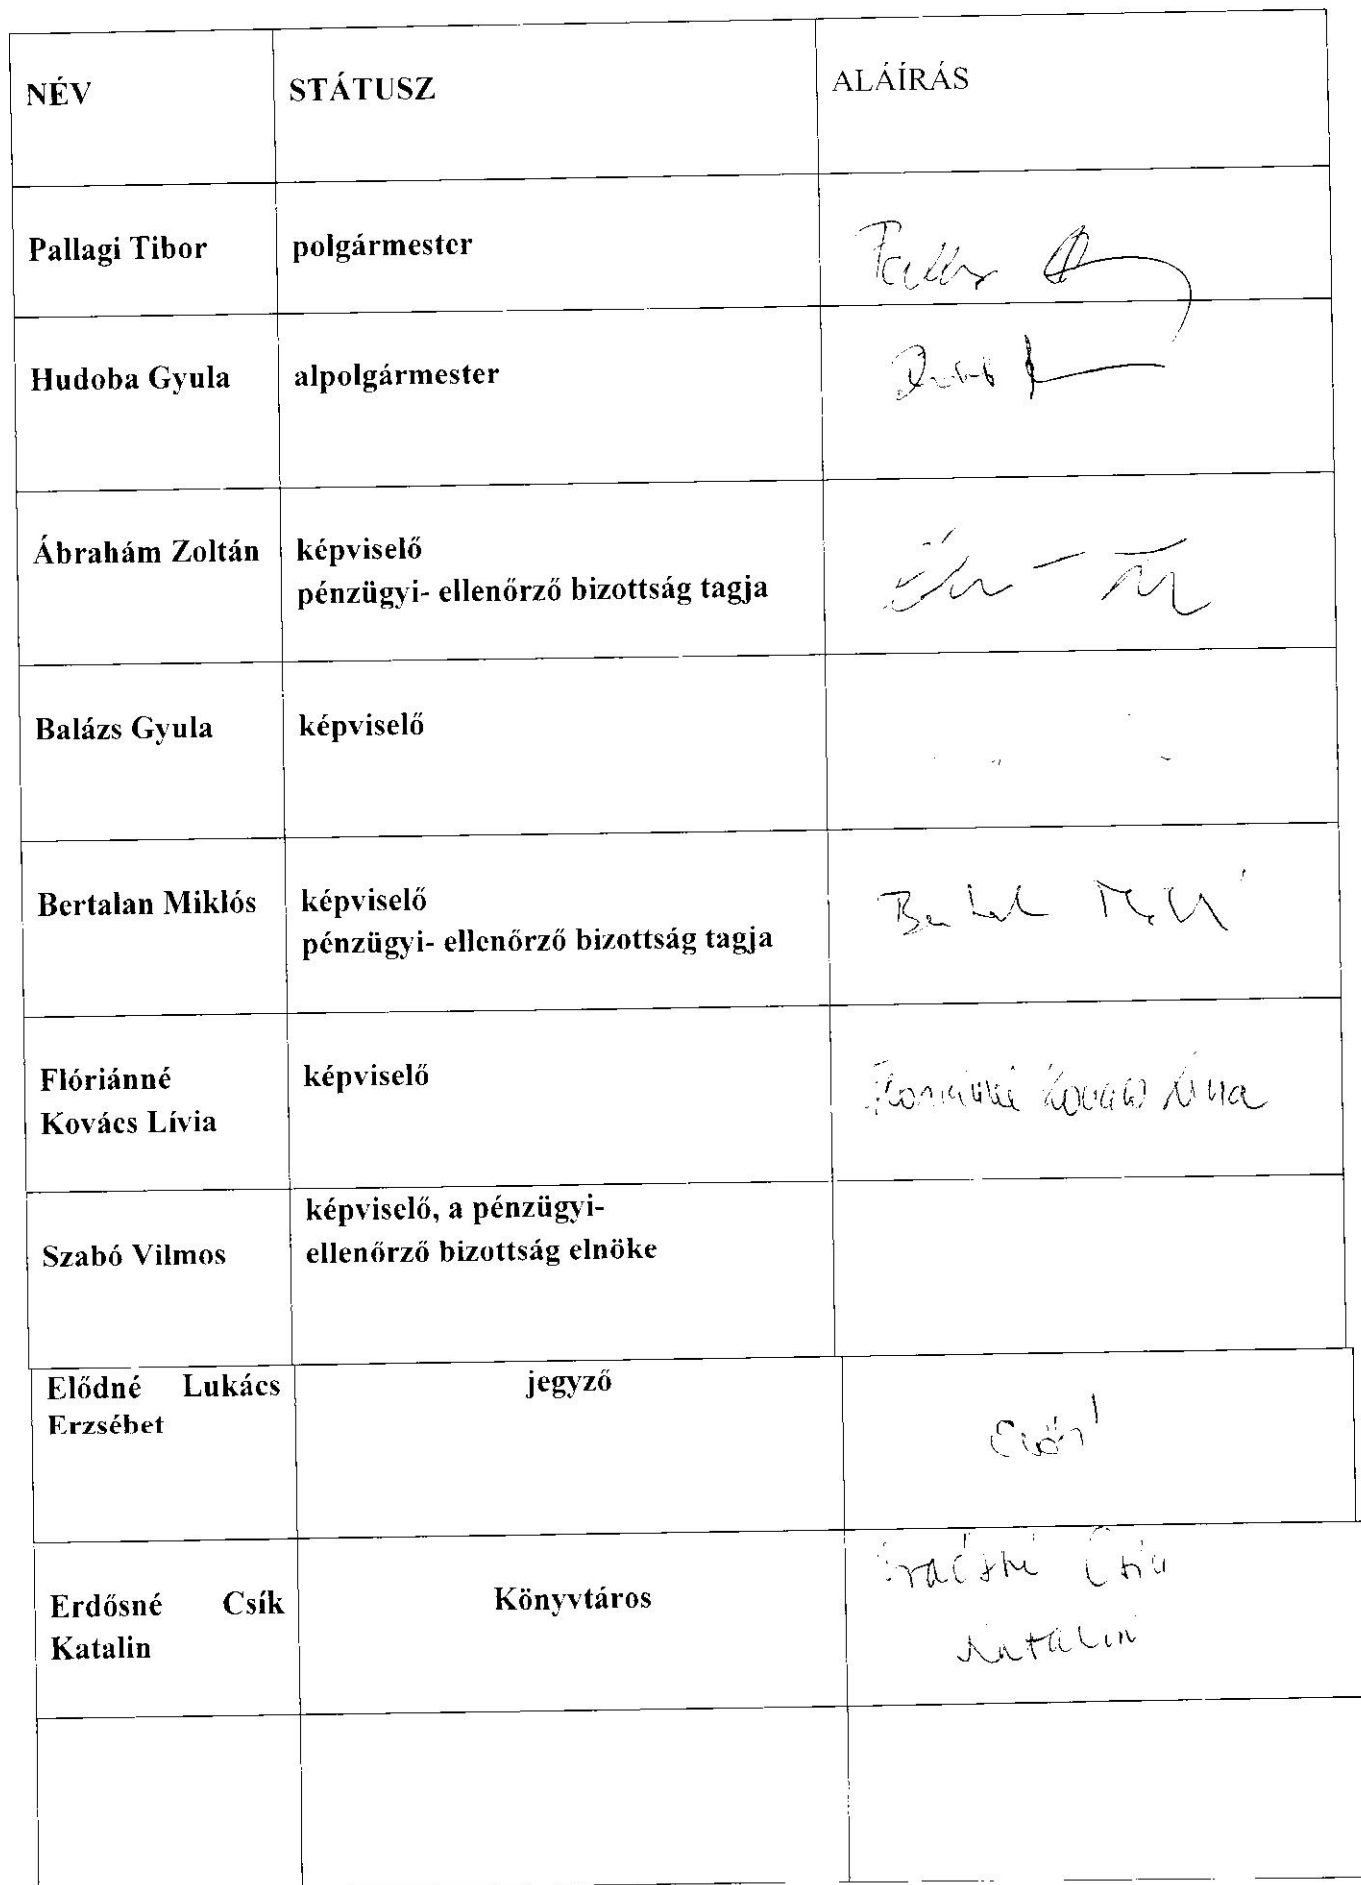 NÉV STÁTUSZ ALÁÍRÁS
Pallagi Tibor polgármester
Hudoba Gyula alpolgármester
Ábrahám Zoltán képviselő
pénzügyi- ellenőrző bizottság tagja
Balázs Gyula képviselő
Bertalan Miklós képviselő
pénzügyi- ellenőrző bizottság tagja
Flóriánné képviselő
Kovács Lívia
képviselő, a pénzügyi-
Szabó Vilmos ellenőrző bizottság elnöke
Elődné Lukács jegyző
Erzsébet
Erdősné Csík Könyvtáros
Katalin Katalin